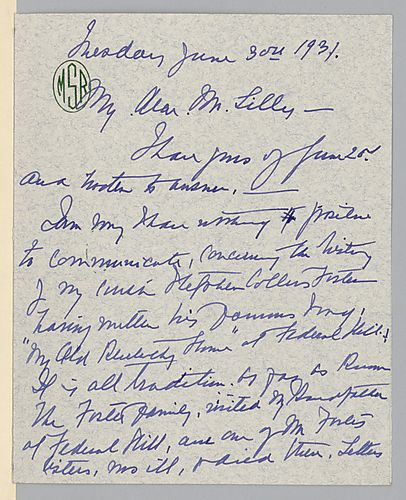 Tuesday June 30th 1931.
MSR
My dear Mr. Lilly —
I have yrs of June 25th
and hasten to answer. —
I am sorry I have nothing positive
to communicate, concerning the writing
of my cousin Stephen Collins Foster
having written his famous song,
"My Old Kentucky Home" at Federal Hill.
It is all tradition. As far as known
the Foster family, visited my Grandfather
at Federal Hill, and one of Mr Fosters
sisters, was ill, & died there. Letters